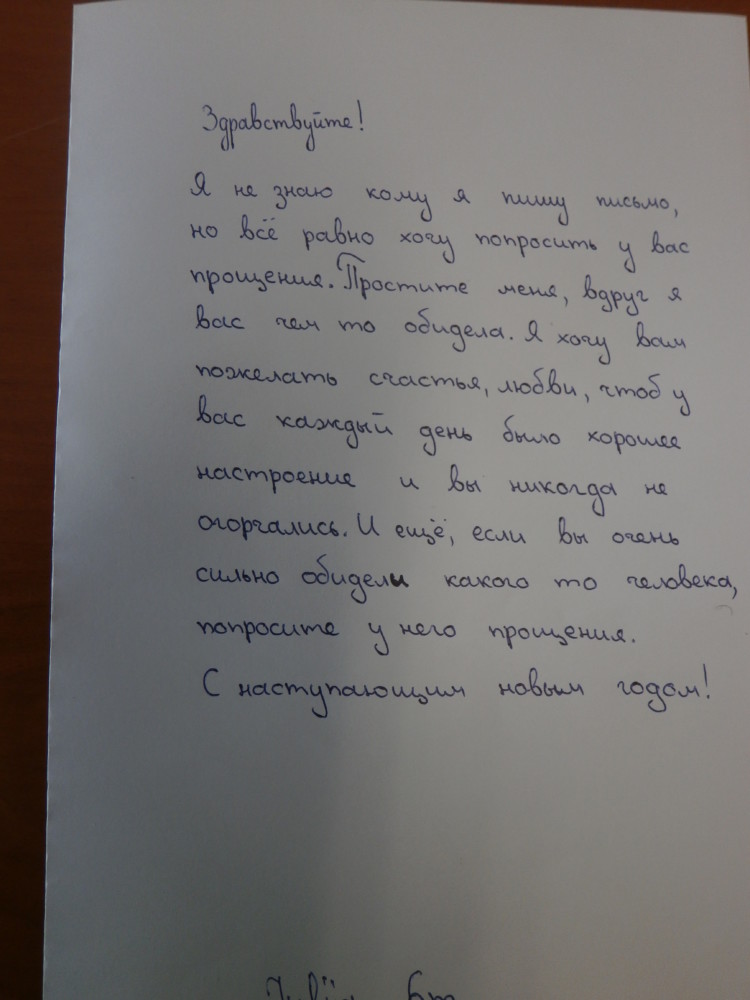 Здравствуйте!
Я не знаю кому я пишу письмо,
но всё равно хочу попросить у вас
прощения. Простите меня, вдруг я
вас чем то обидела. Я хочу вам
пожелать счастья, любви, чтоб у
вас каждый день было хорошее
настроение и вы никогда не
огорчались. И ещё, если вы очень
сильно обидели какого то человека,
попросите у него прощения.
С наступающим новым годом!